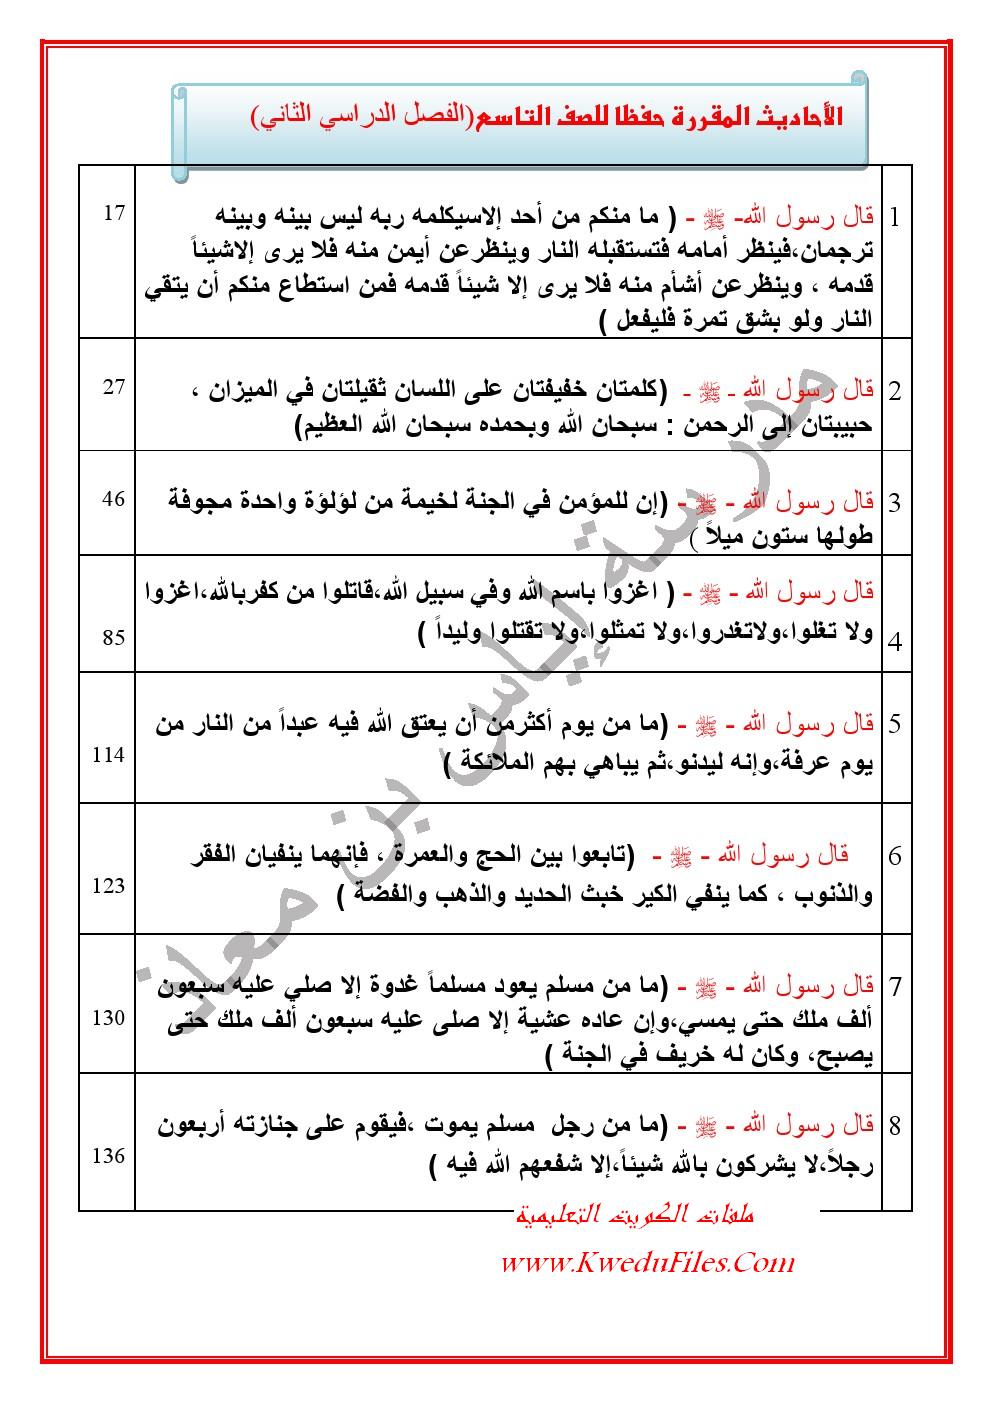 الأحاديث المقررة حفظا للصف التاسع(الفصل الدراسي الثاني)
1
قال رسول الله- ﷺ - ( ما منكم من أحد إلاسيكلمه ربه ليس بينه وبينه
17
ترجمان،فينظر أمامه فتستقبله النار وينظرعن أيمن منه فلا يرى إلاشيئاً
قدمه ، وينظرعن أشأم منه فلا يرى إلا شيئاً قدمه فمن استطاع منكم أن يتقي
النار ولو بشق تمرة فليفعل )
2
قال رسول الله - ﷺ - (كلمتان خفيفتان على اللسان ثقيلتان في الميزان ،
27
حبيبتان إلى الرحمن : سبحان الله وبحمده سبحان الله العظيم)
3
قال رسول الله - ﷺ - (إن للمؤمن في الجنة لخيمة من لؤلؤة واحدة مجوفة
46
طولها ستون ميلاً )
قال رسول الله - ﷺ - ( اغزوا باسم الله وفي سبيل الله،قاتلوا من كفربالله،اغزوا
4
ولا تغلوا،ولاتغدروا،ولا تمثلوا،ولا تقتلوا وليداً )
85
5
قال رسول الله - ﷺ - (ما من يوم أكثرمن أن يعتق الله فيه عبداً من النار من
يوم عرفة،وإنه ليدنو،ثم يباهي بهم الملائكة )
114
6
قال رسول الله - ﷺ - (تابعوا بين الحج والعمرة ، فإنهما ينفيان الفقر
والذنوب ، كما ينفي الكير خبث الحديد والذهب والفضة )
123
7
قال رسول الله - ﷺ - (ما من مسلم يعود مسلماً غدوة إلا صلي عليه سبعون
ألف ملك حتى يمسي،وإن عاده عشية إلا صلى عليه سبعون ألف ملك حتى
130
يصبح، وكان له خريف في الجنة )
8
قال رسول الله - ﷺ - (ما من رجل مسلم يموت ،فيقوم على جنازته أربعون
رجلاً،لا يشركون بالله شيئاً،إلا شفعهم الله فيه )
136
مدرسة إياس بن معاذ
ملفات الكويت التعليمية
www.KweduFiles.Com